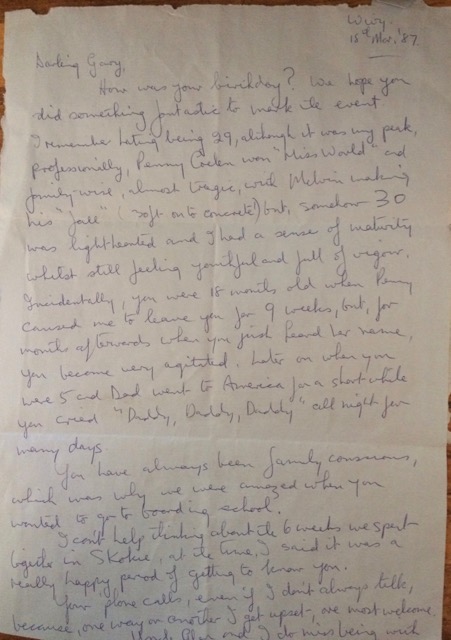 15th Mar. '87
Darling Gary,
How was your birthday? We hope you
did something fantastic to mark the event
I remember hating being 29, although it was my peak,
professionally, Penny Coelen won "Miss World" and
family-wise, almost tragic, with Melvin making
his "fall" (soft onto concrete) but, somehow 30
was lighthearted and I had a sense of maturity
whilst still feeling youthful and full of vigour.
Incidentally, you were 18 months old when Penny
caused me to leave you for 9 weeks, but, for
months afterwards when you just heard her name,
you became very agitated. Later on when you
were 5 and Dad went to America for a short while
you cried "Daddy, Daddy, Daddy" all night for
many days.
You have always been family conscious,
which was why we were amazed when you
wanted to go to boarding school.
I can't help thinking about the 6 weeks we spent
together in Skokie, at the time, I said it was a
really happy period of getting to know you.
Your phone calls, even if I don't always talk,
because, one way or another I get upset, are most welcome
and I do miss being with